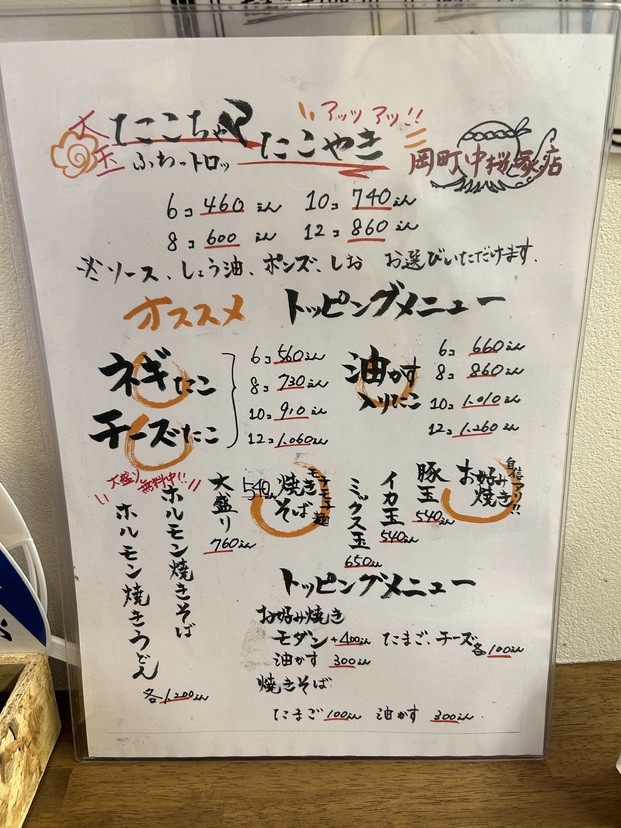 大玉 たこちゃん たこやき アッツアッ!!
ふわ・トロッ
岡町中桜塚店
6コ 460えん 10コ 740えん
8コ 600えん 12コ 860えん
※ソース、しょう油、ポンズ、しお お選びいただけます。
オススメ トッピングメニュー
ネギたこ
チーズたこ
6コ 560えん
8コ 730えん
10コ 910えん
12コ 1,060えん
油かす
入りたこ
6コ 660えん
8コ 860えん
10コ 1,010えん
12コ 1,260えん
お好み焼き
自信アリ!!
豚玉 540えん
イカ玉 540えん
ミックス玉 650えん
焼きそば
モチモチ麺
540えん
大盛り 760えん
大盛り無料中!!
ホルモン焼きそば
ホルモン焼きうどん
各1,200えん
トッピングメニュー
お好み焼き
モダン +400えん たまご、チーズ 各100えん
油かす 300えん
焼きそば
たまご 100えん 油かす 300えん